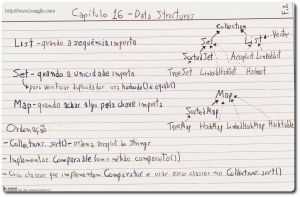 Capítulo 16 - Data Structures
Collection
List - quando a sequência importa
Set
List
Vector
Set - quando a unicidade importa
TreeSet LinkedHashSet Hashset
ArrayList LinkedList
para verificar duplicidade usa hashcode() e equals()
Map
Map - quando achar algo pela chave importa
SortedMap
Ordenação
TreeMap HashMap LinkedHashMap Hashtable
- Collections.sort() - ordena arraylist de Strings
- Implementar Comparable (um método compareTo())
- Criar classes que implementam Comparator e usar essas classes no Collections.sort()